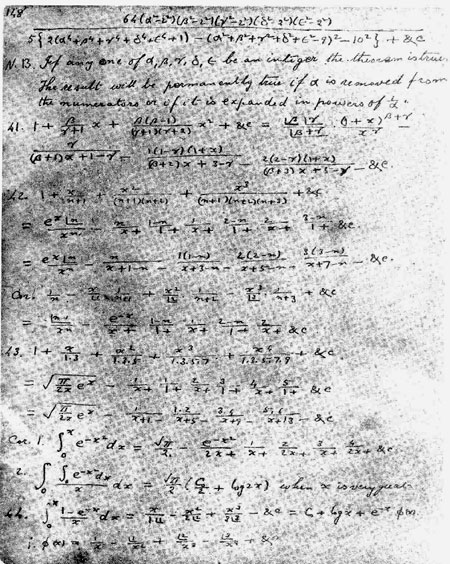 148
64(α²-2²)(β²-2²)(γ²-2²)(δ²-2²)(ε²-2²)
5{2(α⁴+β⁴+γ⁴+δ⁴+ε⁴+1) - (α²+β²+γ²+δ²+ε²-9)² - 10²} + &c
N.B. If any one of α, β, γ, δ, ε be an integer the theorem is true.
The result will be permanently true if α is removed from
the numerators or if it is expanded in powers of 1/α.
41. 1 + β/(γ+1) x + β(β-1)/((γ+1)(γ+2)) x² + &c = |β |γ / |β+γ · (1+x)^(β+γ) / x^γ -
γ/((β+1)x+1-γ) - 1(1-γ)(1+x)/((β+2)x+3-γ) - 2(2-γ)(1+x)/((β+3)x+5-γ) - &c.
42. 1 + x/(n+1) + x²/((n+1)(n+2)) + x³/((n+1)(n+2)(n+3)) + &c
= e^x |n / x^n - n/x + (1-n)/1 + 1/x + (2-n)/1 + 2/x + (3-n)/1 + &c
= e^x |n / x^n - n/(x+1-n) - 1(1-n)/(x+3-n) - 2(2-n)/(x+5-n) - 3(3-n)/(x+7-n) - &c.
Cor. 1/n - x/|1 · 1/(n+1) + x²/|2 · 1/(n+2) - x³/|3 · 1/(n+3) + &c
= |n-1 / x^n - e^-x/x + (1-n)/1 + 1/x + (2-n)/1 + 2/x + &c
43. 1 + x/1.3 + x²/1.3.5 + x³/1.3.5.7 + x⁴/1.3.5.7.9 + &c.
= √(π/2x) e^x - 1/x + 1/1 + 2/x + 3/1 + 4/x + 5/1 + &c
= √(π/2x) e^x - 1/(x+1) - 1.2/(x+5) - 3.4/(x+9) - 5.6/(x+13) - &c
Cor. 1. ∫₀^x e^-x² dx = √π/2 - e^-x²/2x + 1/x + 2/2x + 3/x + 4/2x + &c
2. ∫₀ ∫₀ e^-x² dx / x dx = √π/2 (C/2 + log 2x) when x is very great.
44. ∫₀^x (1-e^-x)/x dx = x/1|1 - x²/2|2 + x³/3|3 - &c = C + log x + e^-x φ(x)
; φ(x) = 1/x - |1/x² + |2/x³ - |3/x⁴ + &c